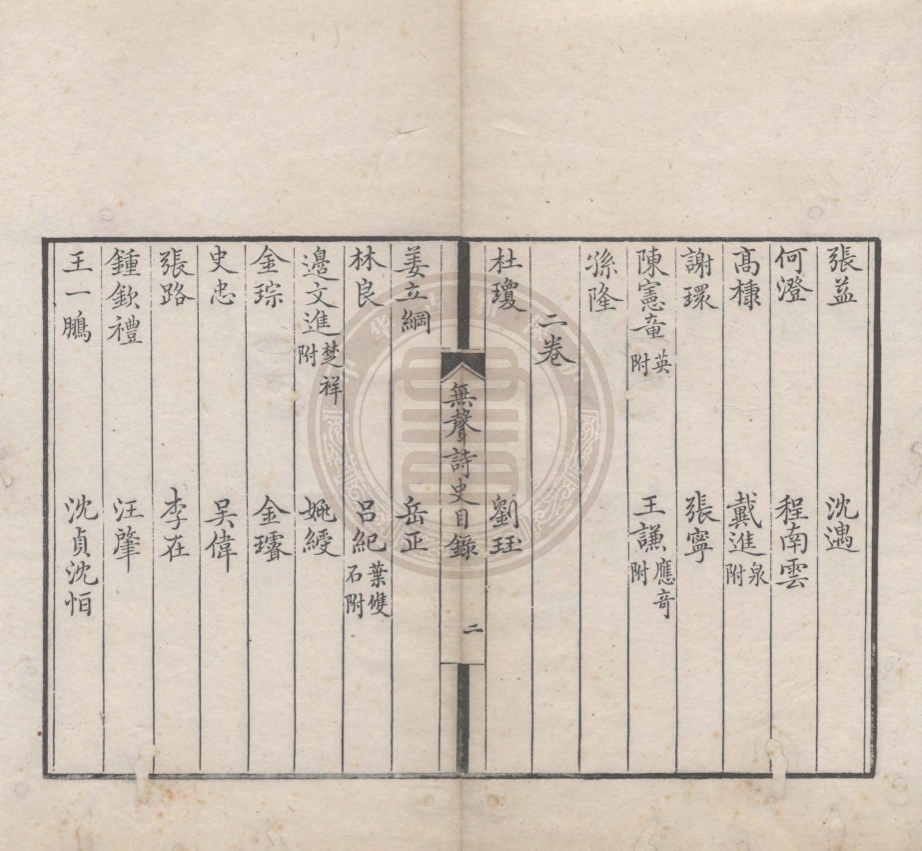 張益 沈遇
何澄 程南雲
髙㯶 戴進泉附
謝環 張寧
陳憲章英附 王謙應奇附
孫隆
二卷
杜瓊 劉珏
無聲詩史目錄 二
姜立綱 岳正
林良 呂紀葉雙石附
邉文進楚祥附 姚綬
金琮 金璿
史忠 吳偉
張路 李在
鍾欽禮 汪肇
王一鵬 沈貞沈恒